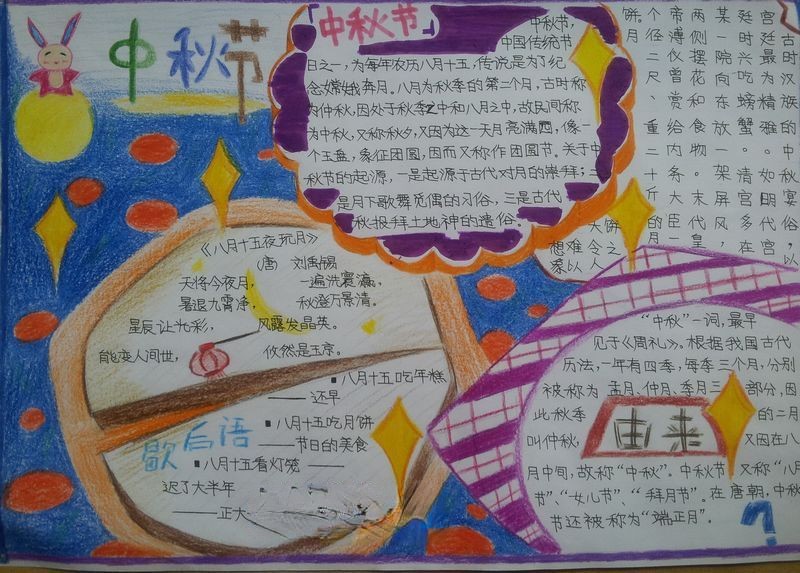 中秋节
「中秋节」
中秋节，
中国传统节
日之一，为每年农历八月十五，传说是为了纪
念嫦娥奔月。八月为秋季的第二个月，古时称
为仲秋，因处于秋季之中和八月之中，故民间称
为中秋，又称秋夕，又因为这一天月亮满圆，像一
个玉盘，象征团圆，因而又称作团圆节。关于中
秋节的起源，一是起源于古代对月的崇拜；二
是月下歌舞觅偶的习俗，三是古代
秋报拜土地神的遗俗。
古时汉族的中秋宴俗，以
宫廷最为精雅。如明代宫，
廷时兴吃螃蟹。清宫多在
某一院向东放一架屏风，
两侧摆花和食物。末代皇
帝溥仪曾赏给内务大臣一
个径二尺、重二十斤的月
饼
之大令人难以想
《八月十五夜玩月》
（唐） 刘禹锡
天将今夜月， 一遍洗寰瀛。
暑退九霄净， 秋澄万景清。
星辰让光彩， 风露发晶英。
能变人间世， 攸然是玉京。
歇后语
八月十五吃年糕
——还早
八月十五吃月饼
——节日的美食
八月十五看灯笼——
迟了大半年
——正大
由来
“中秋”一词，最早
见于《周礼》。根据我国古代
历法，一年有四季，每季三个月，分别
被称为 孟月、仲月、季月三 部分，因
此秋季 的二月
叫仲秋， 又因在八
月中旬，故称“中秋”。中秋节又称“八月
节”、“女儿节”、“拜月节”。在唐朝，中秋
节还被称为“端正月”。